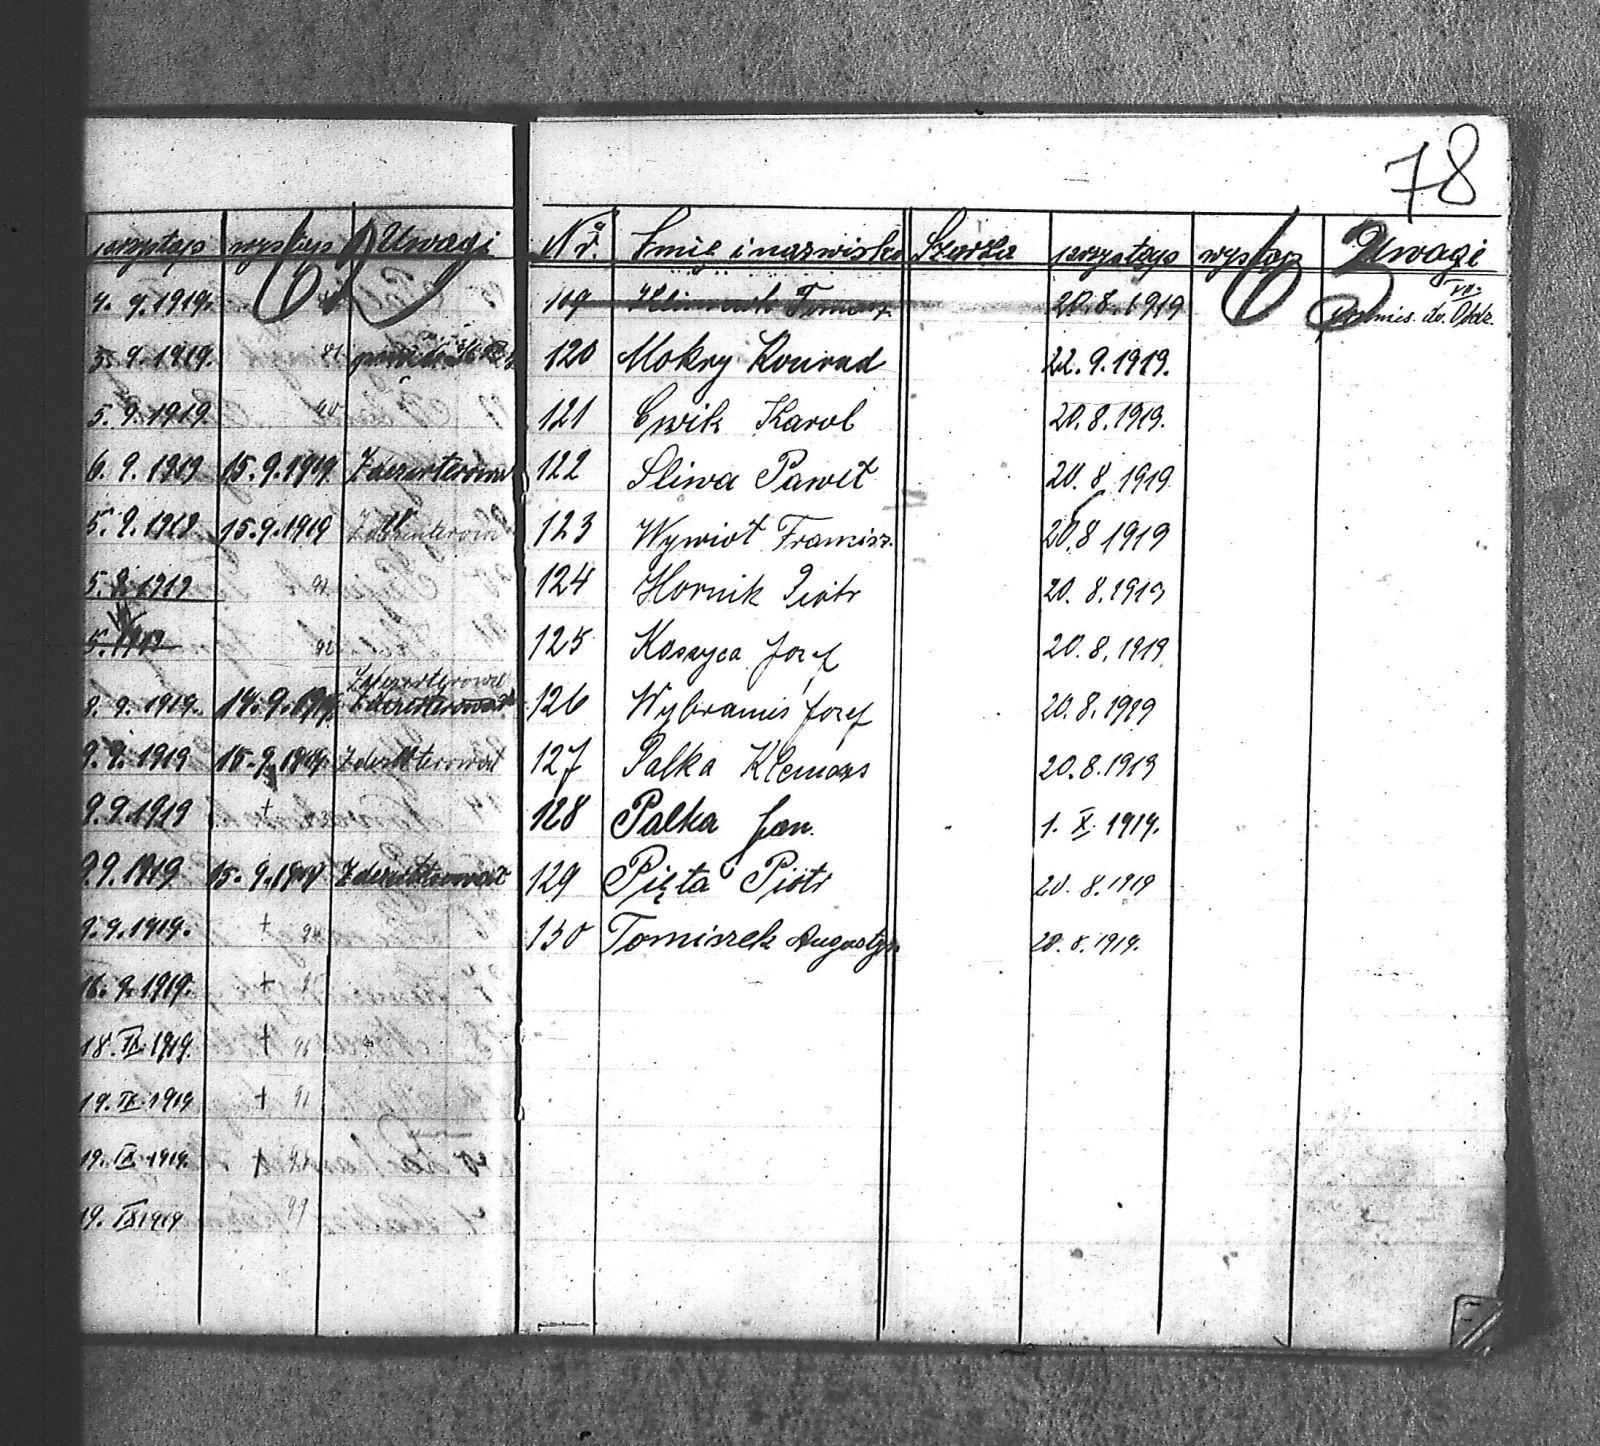 78
przystąp wystąp Uwagi
4. 9. 1919.
5. 9. 1919.
5. 9. 1919.
6. 9. 1919 15. 9. 1919 Zdezerterował
5. 9. 1919 15. 9. 1919 Zdezerterował
5. 9. 1919
5. 1919
Zdezerterował
8. 9. 1919. 14. 9. 1919. Zdezerterował
9. 9. 1919 15. 9. 1919. Zdezerterował
9. 9. 1919 +
9. 9. 1919 15. 9. 1919 Zdezerterował
9. 9. 1919. +
16. 9. 1919. +
18. IX. 1919. +
19. IX. 1919 +
19. IX. 1919. +
19. IX 1919
Nr. Imię i nazwisko Szarża przystąp wystąp Uwagi
119 Tomasz 20. 8. 1919 do Odd.
120 Mokry Konrad 22. 9. 1919.
121 Cwik Karol 20. 8. 1919.
122 Sliwa Paweł 20. 8. 1919
123 Wywioł Francisz. 20. 8 1919
124 Hornik Piotr 20. 8. 1919
125 Koszyca Jozef 20. 8. 1919
126 Wybraniś Jozef 20. 8. 1919
127 Palka Klemens 20. 8. 1919
128 Palka Jan. 1. X. 1919.
129 Pięta Piotr 20. 8. 1919
130 Tomiszek Augustyn 20. 8. 1919.